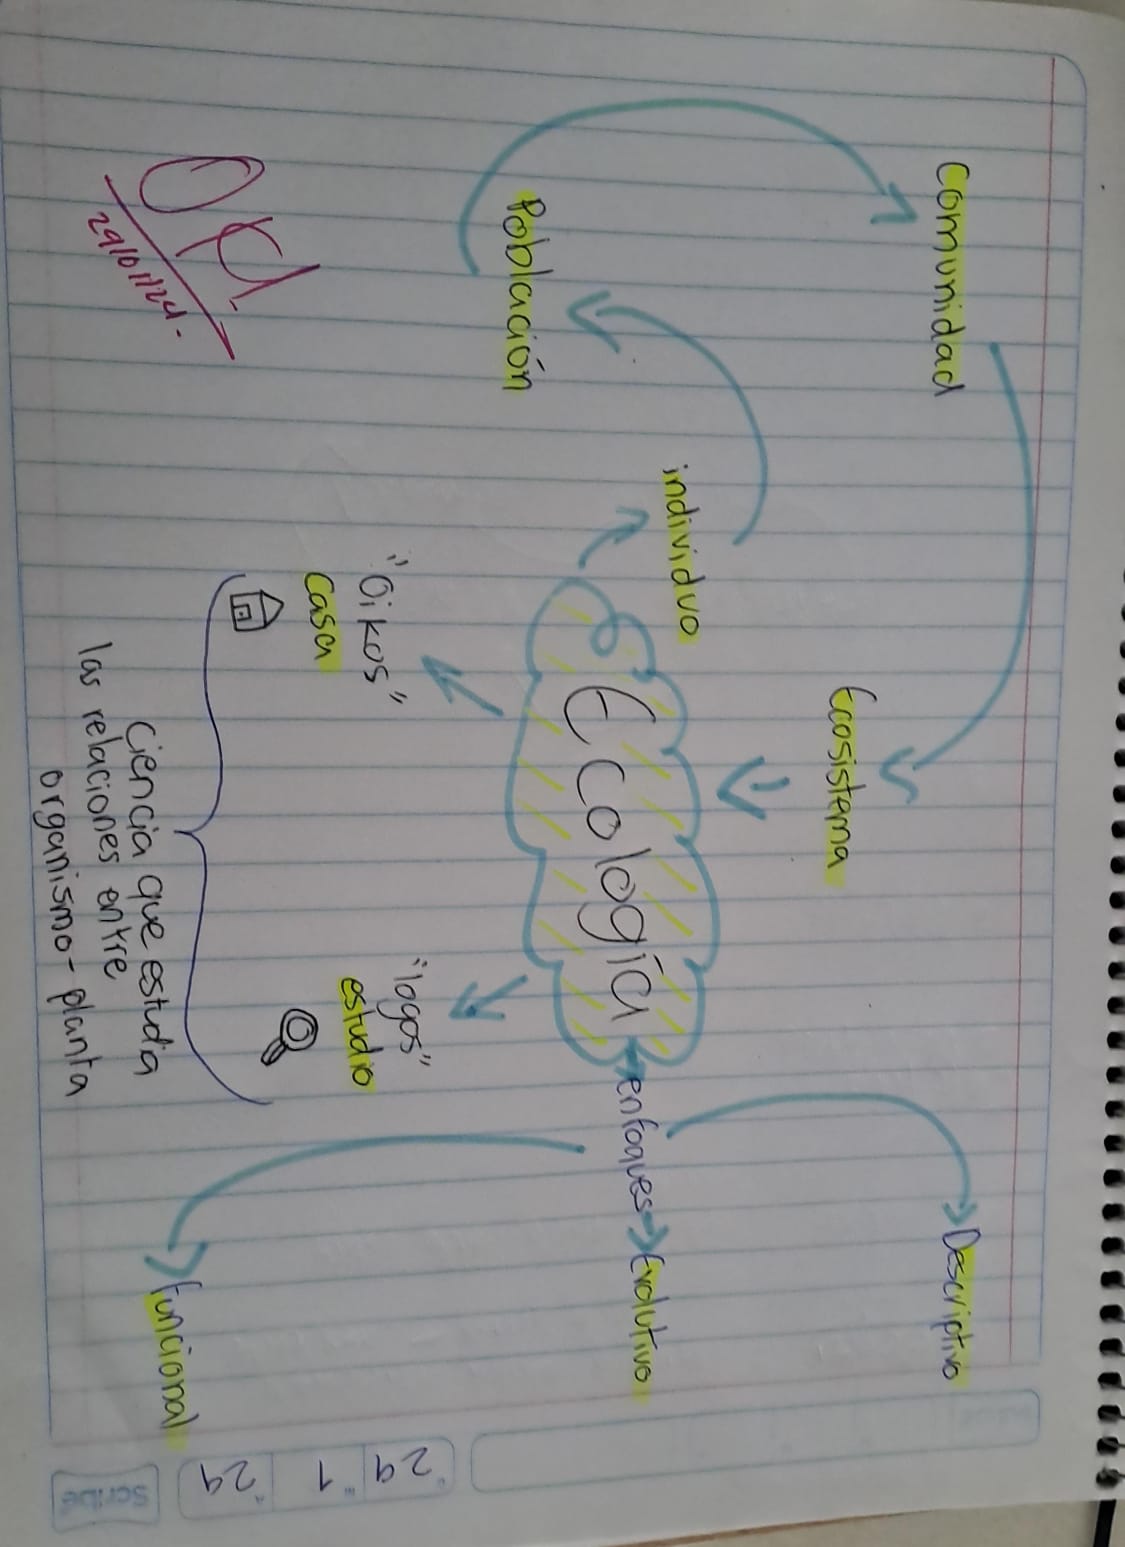 Comunidad
Ecosistema
Descriptivo
individuo
Población
Ecología
enfoques
Evolutivo
"Oikos"
casa
"logos"
estudio
Funcional
Ciencia que estudia
las relaciones entre
organismo-planta
29/01/24.
29 1 24
scribe